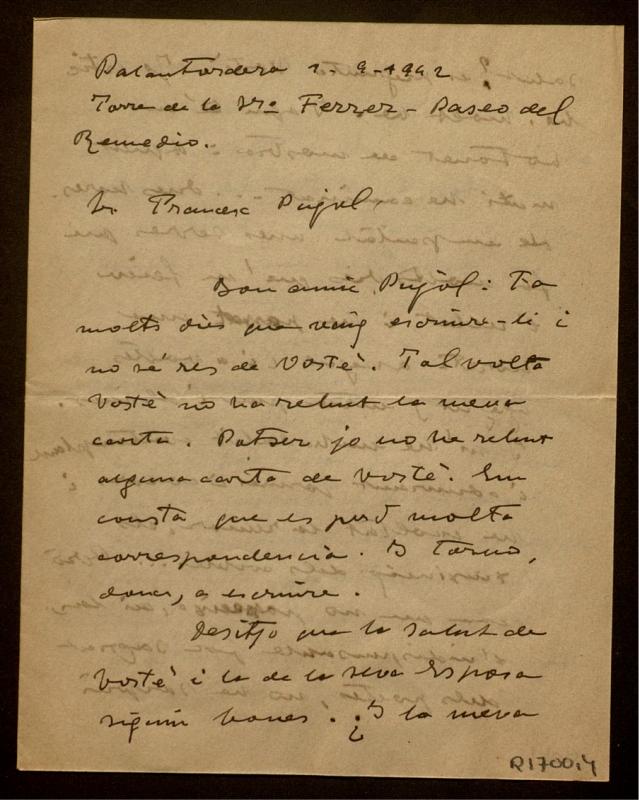 Palautordera 1-9-1942
Torre de la Vda Ferrer - Paseo del
Remedio.
Sr. Francesc Pujol,
Bon amic Pujol: Fa
molts dies que vaig escriure-li i
no sé res de Vostè. Tal volta
Vostè no ha rebut la meva
carta. Potser jo no he rebut
alguna carta de Vostè. Em
consta que es perd molta
correspondencia. I torno,
doncs, a escriure.
Desitjo que la salut de
Vostè i la de la seva Esposa
siguin bones. ¿I la meva
R1700,4